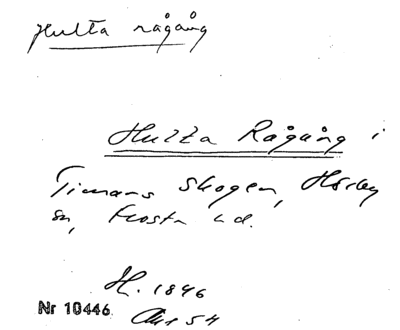 Hulta rågång
Hulta Rågång i
Timans Skogen, Hörby
sn, Frosta hd.
H. 1846
Akt 54
Nr 10446